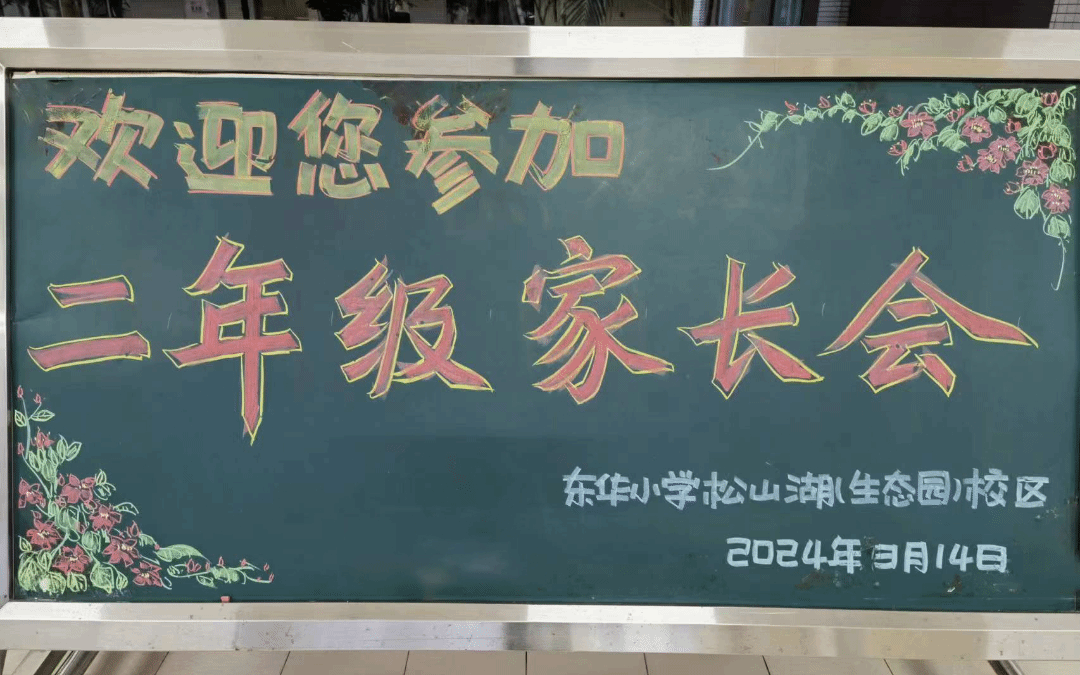 欢迎您参加
二年级家长会
东华小学松山湖(生态园)校区
2024年3月14日